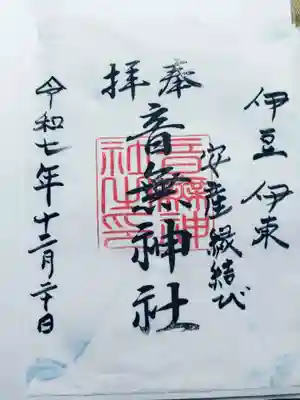 伊豆 伊東
安産縁結び
奉拝
音無神社
音無神社之印
令和七年十二月二十日